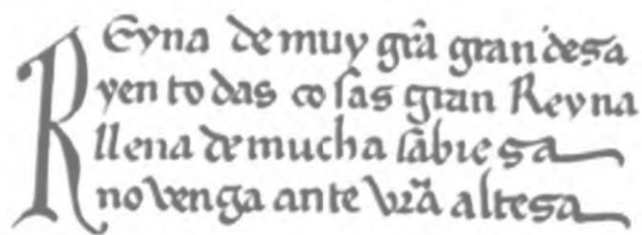 REyna de muy grã grandesa
y en todas cosas gran Reyna
llena de mucha sabiesa
no venga ante vrã altesa